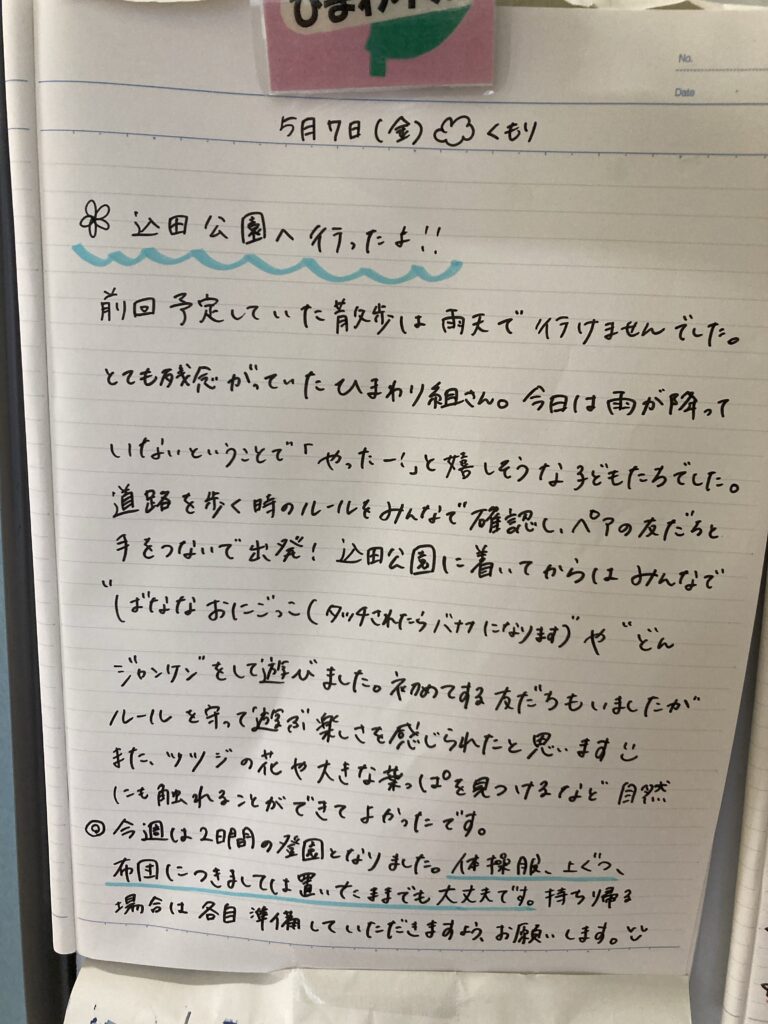 ひまわり
No.
Date
5月7日(金) くもり
込田公園へ行ったよ!!
前回予定していた散歩は雨天で行けませんでした。
とても残念がっていたひまわり組さん。今日は雨が降って
いないということで「やったー!」と嬉しそうな子どもたちでした。
道路を歩く時のルールをみんなで確認し、ペアの友だちと
手をつないで出発! 込田公園に着いてからはみんなで
"ばななおにごっこ(タッチされたらバナナになります)"や"どん
ジャンケン"をして遊びました。初めてする友だちもいましたが
ルールを守って遊ぶ楽しさを感じられたと思います
また、ツツジの花や大きな葉っぱを見つけるなど自然
にも触れることができてよかったです。
◎今週は2日間の登園となりました。体操服、上ぐつ、
布団につきましては置いたままでも大丈夫です。持ち帰る
場合は各自準備していただきますよう、お願いします。